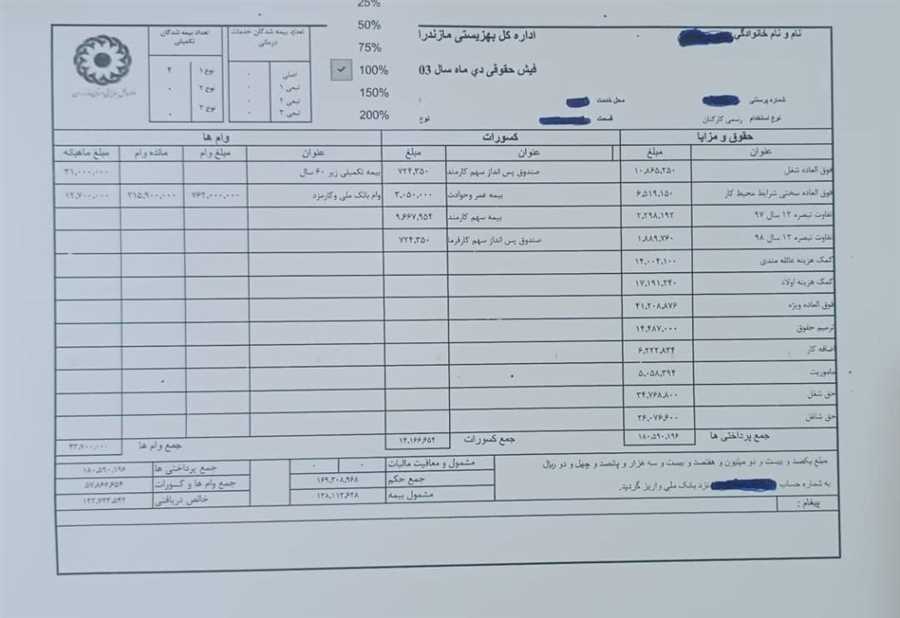 25%
50%
75%
100%
150%
200%
نام و نام خانوادگی
اداره کل بهزیستی مازندرا
فیش حقوقی دي ماه سال 03
تعداد بیمه شدگان خدمات درمانی
تعداد بیمه شدگان تکمیلی
اصلی ۰ نوع ۱ ۴
تبعی ۱ ۰ نوع ۲ ۰
تبعی ۲ ۰ نوع ۳
تبعی ۳ ۰ ۰
شماره پرسنلی محل خدمت
نوع استخدام رسمی کارکنان قسمت نوع
حقوق و مزایا کسورات وام ها
عنوان مبلغ عنوان مبلغ عنوان مبلغ وام مانده وام مبلغ ماهیانه
فوق العاده شغل ۱۰,۸۶۵,۲۵۰ صندوق پس انداز سهم کارمند ۷۲۴,۳۵۰ بیمه تکمیلی زیر ۶۰ سال ۳۱,۰۰۰,۰۰۰
فوق العاده سختی شرایط محیط کار ۶,۵۱۹,۱۵۰ بیمه عمر وحوادث ۳,۰۵۰,۰۰۰ وام بانک ملی وکارمزد ۷۶۲,۰۰۰,۰۰۰ ۲۱۵,۹۰۰,۰۰۰ ۱۲,۷۰۰,۰۰۰
تفاوت تبصره ۱۲ سال ۹۷ ۲,۲۹۸,۱۹۲ بیمه سهم کارمند ۹,۶۶۷,۹۵۴
تفاوت تبصره ۱۲ سال ۹۸ ۱,۸۸۹,۷۶۰ صندوق پس انداز سهم کارفرما ۷۲۴,۳۵۰
کمک هزینه عائله مندی ۱۴,۰۰۴,۱۰۰
کمک هزینه اولاد ۱۷,۱۹۱,۲۴۰
فوق العاده ویژه ۴۱,۲۰۸,۸۷۶
ترمیم حقوق ۱۴,۴۸۷,۰۰۰
اضافه کار ۶,۲۲۲,۸۳۴
ماموریت ۵,۰۵۸,۳۹۴
حق شغل ۳۴,۷۶۸,۸۰۰
حق شاغل ۲۶,۰۷۶,۶۰۰
جمع پرداختی ها ۱۸۰,۵۹۰,۱۹۶ جمع کسورات ۱۴,۱۶۶,۶۵۴ جمع وام ها ۴۳,۷۰۰,۰۰۰
مبلغ یکصد و بیست و دو میلیون و هفتصد و بیست و سه هزار و پانصد و چهل و دو ریال
به شماره حساب نزد بانک ملی واریز گردید.
مشمول و معافیت مالیات ۰ ۰
جمع حکم ۱۶۹,۳۰۸,۹۶۸
مشمول بیمه ۱۳۸,۱۱۳,۶۲۸
جمع پرداختی ها ۱۸۰,۵۹۰,۱۹۶
جمع وام ها و کسورات ۵۷,۸۶۶,۶۵۴
خالص دریافتی ۱۲۲,۷۲۳,۵۴۲
پیغام :